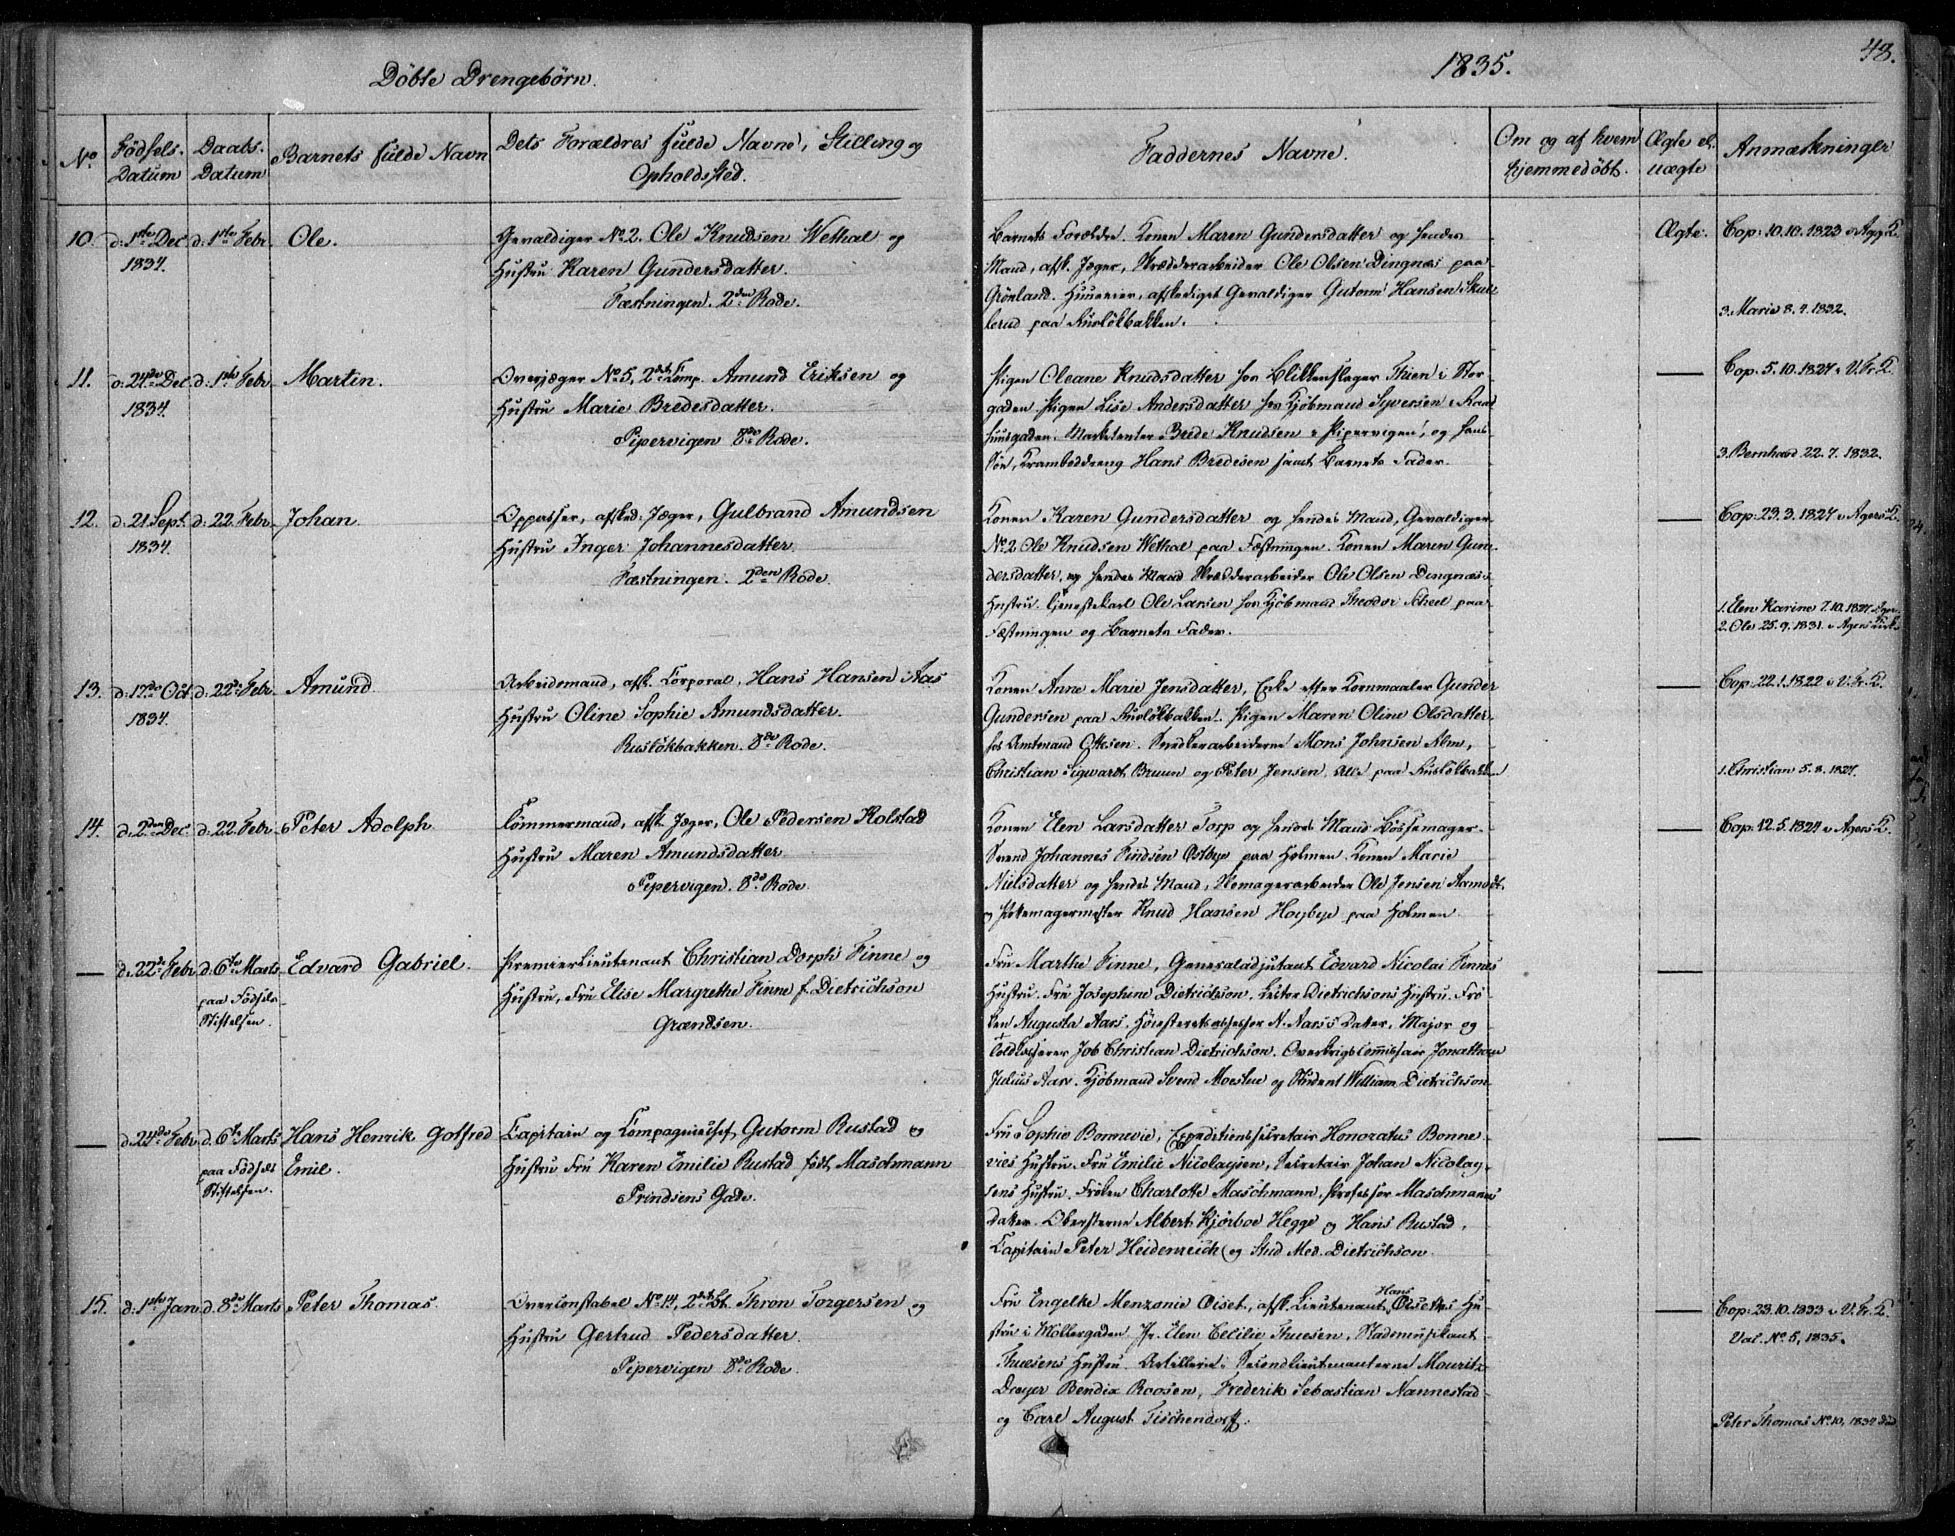 Döbte Drengebörn.
1835.
48.
No.
Födsels-Datum
Daabs-Datum
Barnets fulde Navn
Dets Forældres fulde Navne, Stilling og Opholdssted.
Faddernes Navne.
Om og af hvem hjemmedöbt.
Ægte el. uægte
Anmærkninger
10. d: 1ste Dec 1834. d: 1ste Febr. Ole.
Gevaldiger No 2. Ole Knudsen Wethal og
Hustru Karen Gundersdatter.
Fæstningen. 2den Rode.
Barnets Forældre. Konen Maren Gundersdatter og hendes
Mand, afsk. Jæger, Skrædderarbeider Ole Olsen Dingnæs paa
Grönland. Huuseier, afskediget Gevaldiger Gutorm Hansen Skul-
lerud paa Ruslökbakken.
Ægte.
Cop: 10.10.1823 i Agg. K.
3. Marie 8.4.1832.
11. d: 24de Dec 1834. d: 1ste Febr. Martin.
Overjæger No 5, 2det Komp. Amund Eriksen og
Hustru Marie Bredesdatter.
Pipervigen 8de Rode.
Pigen Oleane Knudsdatter hos Blikkenslager Thien i Stor-
gaden Pigen Lise Andersdatter hos Kjöbmand Syversen i Raad-
huusgaden. Marketenter Brede Knudsen i Pipervigen, og hans
Sön, Kramboddreng Hans Bredesen samt Barnets Fader.
Cop. 5.10.1827 i V. Fr. K.
3. Bernhard 22.7.1832.
12. d: 21 Sept. 1834. d: 22 Febr. Johan.
Oppasser, afsked: Jæger, Gulbrand Amundsen
Hustru Inger Johannesdatter.
Fæstningen. 2den Rode.
Konen Karen Gundersdatter og hendes Mand, Gevaldiger
No 2 Ole Knudsen Wethal paa Fæstningen. Konen Maren Gun-
dersdatter, og hendes Mand Skrædderarbeider Ole Olsen Dingnæs's
Hustru. Tjenestekarl Ole Larsen hos Kjöbmand Theodor Scheel paa
Fæstningen og Barnets Fader.
Cop: 23.3.1827 i Agers K.
1. Elen Karine 7.10.1827 i Agers
2. Ole 25.9.1831 i Agers Kirke
13. d: 17de Oct. 1834. d: 22de Febr. Amund
Arbeidsmand, afsk. Corporal, Hans Hansen Aas
Hustru Oline Sophie Amundsdatter.
Ruslökbakken. 8de Rode.
Konen Anne Marie Jensdatter, Enke efter Kornmaaler Gunder
Gundersen paa Ruslökbakken. Pigen Maren Oline Olsdatter
hos Amtmand Ottesen. Snedkerarbeiderne Mons Johnsen Alm,
Christian Sigwardt Bruun og Peter Jensen. Alle paa Ruslökbakken
Cop: 22.1.1822 i V. Fr. K.
1. Christian 5.8.1827.
14. d: 2den Dec d: 22 Febr. Peter Adolph.
Tömmermand, afsk. Jæger, Ole Pedersen Kolstad
Hustru Maren Amundsdatter.
Pipervigen. 8de Rode.
Konen Elen Larsdatter Torp og hendes Mand Bössemager-
Svend Johannes Findsen Östbye paa Holmen. Konen Marie
Nielsdatter og hendes Mand, Ole Jensen
Knud Hansen Hoybye paa Holmen.
Cop: 12.5.1824 i Agers K.
— d: 22de Febr d: 6te Marts Edvard Gabriel.
paa Födsels-
Stiftelsen.
Premierlieutenant Christian Dorph Finne og
Hustru, Fru Elise Margrethe Finne f. Dietrichson
Grændsen.
Fru Marthe Finne, Generaladjutant Edvard Nicolai Finnes
Hustru. Fru Josephine Dietrichson, Lector Dietrichsons Hustru. Frö-
ken Augusta Aars, Höiesteretsassessor N. Aars's Datter, Major og
Toldkasserer Job Christian Dietrichson. Overkrigscommissair Jonathan
Julius Aars. Kjöbmand Svend Moestue og Student William Dietrichson.
— d: 24de Febr d. 6te Marts Hans Henrik Gotfred
Emil.
paa Födsels
Stiftelsen.
Capitain og Compagniechef Gutorm Rustad og
Hustru Fru Karen Emilie Rustad födt Maschmann
Prindsens Gade.
Fru Sophie Bonnevie, Expeditionssecretair Honoratus Bonne-
vies Hustru. Fru Emilie Nicolaysen, Secretair Johan Nicolay-
sens Hustru. Fröken Charlotte Maschmann, Professor Maschmanns
Datter. Obersterne Albert Kjörboe Hegge og Hans Rustad.
Capitain Peter Heidenreich og Stud. Med. Dietrichson.
15. d: 1ste Jan d. 8de Marts Peter Thomas.
Overconstabel No 14, 2det Bt. Thron Torgersen og
Hustru Gertrud Pedersdatter.
Pipervigen 8de Rode.
Fru Engelke Menzonie Öiset, afsk. Lieutenant Hans Öisettes Hu-
stru i Möllergaden. Elen Cecilie Thuesen, Stadsmusikant
Thuesens Hustru. Artillerie-Secondlieutenanterne Mouritz
Dreyer Bendix Roosen, Frederik Sebastian Nannestad
og Carl August Tischendorff.
Cop: 23.10.1833 i V. Fr. K.
Val. No 5, 1835.
Peter Thomas No 10, 1834 död